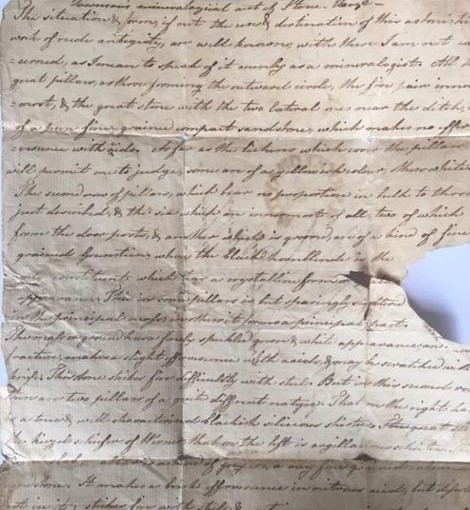 mineralogical act of Stone Henge
The situation & form, if not the use & destination of this astonishing
work of rude antiquity, are well known; with these I am not con
=cerned, as I mean to speak of it merely as a mineralogist. All the
great pillars, as those forming the outward circle, the five pair inner
=most, & the great stone with the two lateral ones near the ditch,
of a fine grained compact sandstone, which makes no effer
=vescence with acids. As far as the lichens which cover the pillars
will permit me to judge, some are of a yellowish colour others white
The second row of pillars, which bear no proportion in bulk to those
just described, & the six which are innermost of all, two of which
form the door posts, & another which is ground, are of a kind of fine
grained Grunstein where the black hornblende is the
constituent which has a crystalline form or
appearance. This in some pillars is but sparingly scattered
in the principal mass, in others it forms a principal part.
The mass or ground has a finely speckled green & white appearance, an un
fracture, makes a slight effervescence with acids & may be scratched with a
knife. This stone strikes fire difficultly with steel. But in this second row
are two pillars of a quite different nature. That on the right
is a true & well characterised blackish siliceous schistus,
the kiesel schiefer of Werner, that on the left is argillaceous schistus
stone. It makes a brisk effervescence in nitrous acids, but
not in it; strikes fire with steel, &